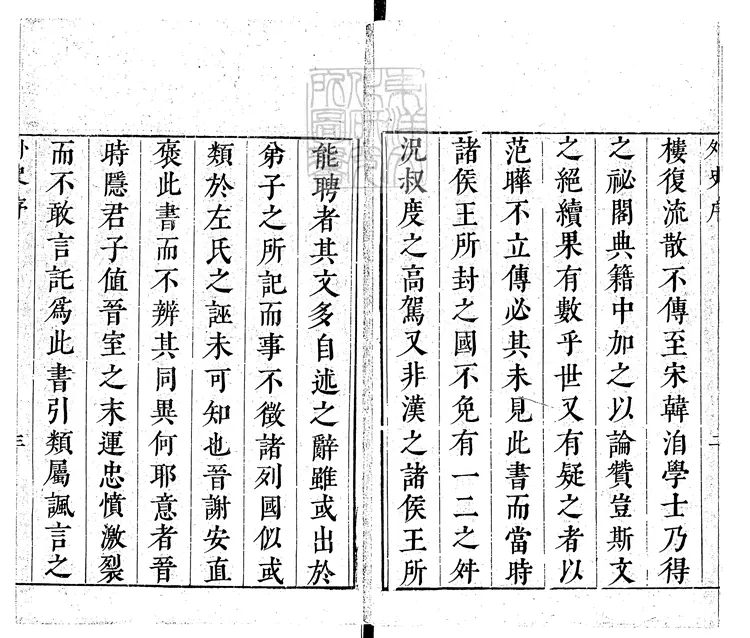 外史序
二
樓復流散不傳至宋韓洎學士乃得
之祕閣典籍中加之以論贊豈斯文
之絕續果有數乎世又有疑之者以
范曄不立傳必其未見此書而當時
諸侯王所封之國不免有一二之舛
況叔度之高駕又非漢之諸侯王所
能聘者其文多自述之辭雖或出於
弟子之所記而事不徵諸列國似或
類於左氏之誣未可知也晉謝安直
褒此書而不辨其同異何耶意者晉
時隱君子值晉室之末運忠憤激裂
而不敢言託爲此書引類屬諷言之
外史序
三